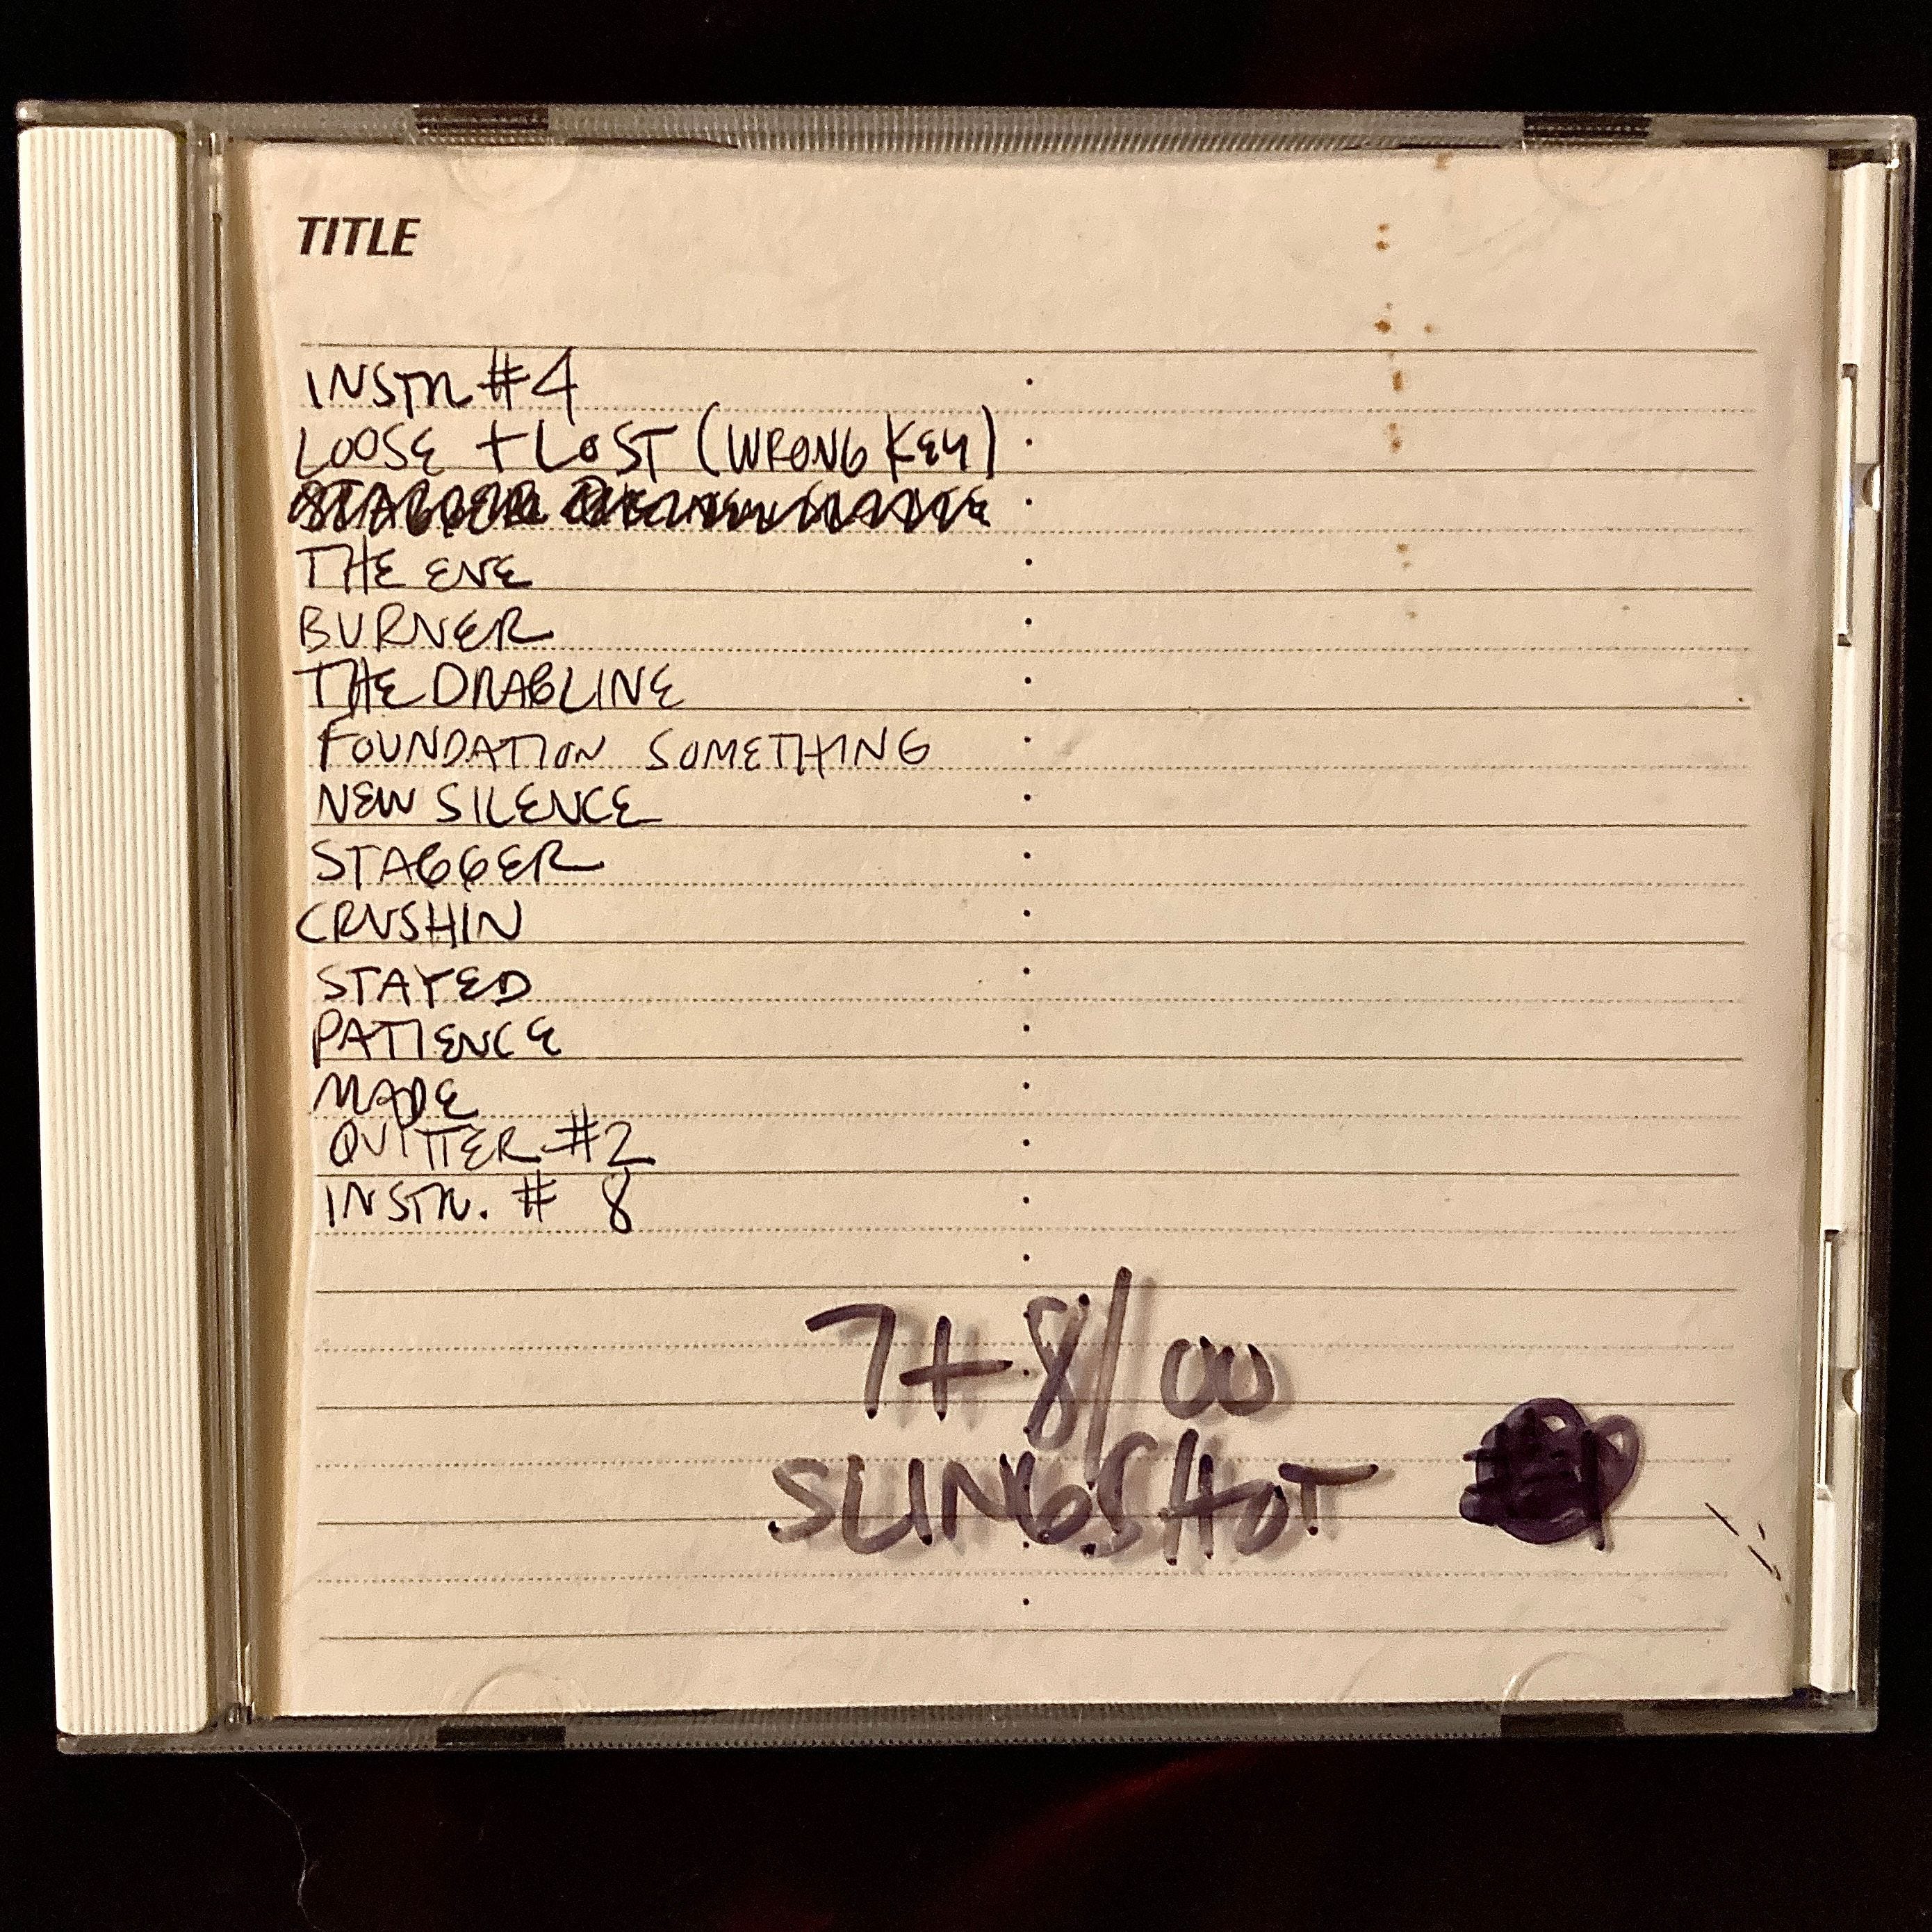 TITLE
INSTR #4
LOOSE + LOST (WRONG KEY)
THE EVE
BURNER
THE DRAGLINE
FOUNDATION SOMETHING
NEW SILENCE
STAGGER
CRUSHIN
STAYED
PATIENCE
MADE
QUITTER #2
INSTR. # 8
7+8/00
SLINGSHOT